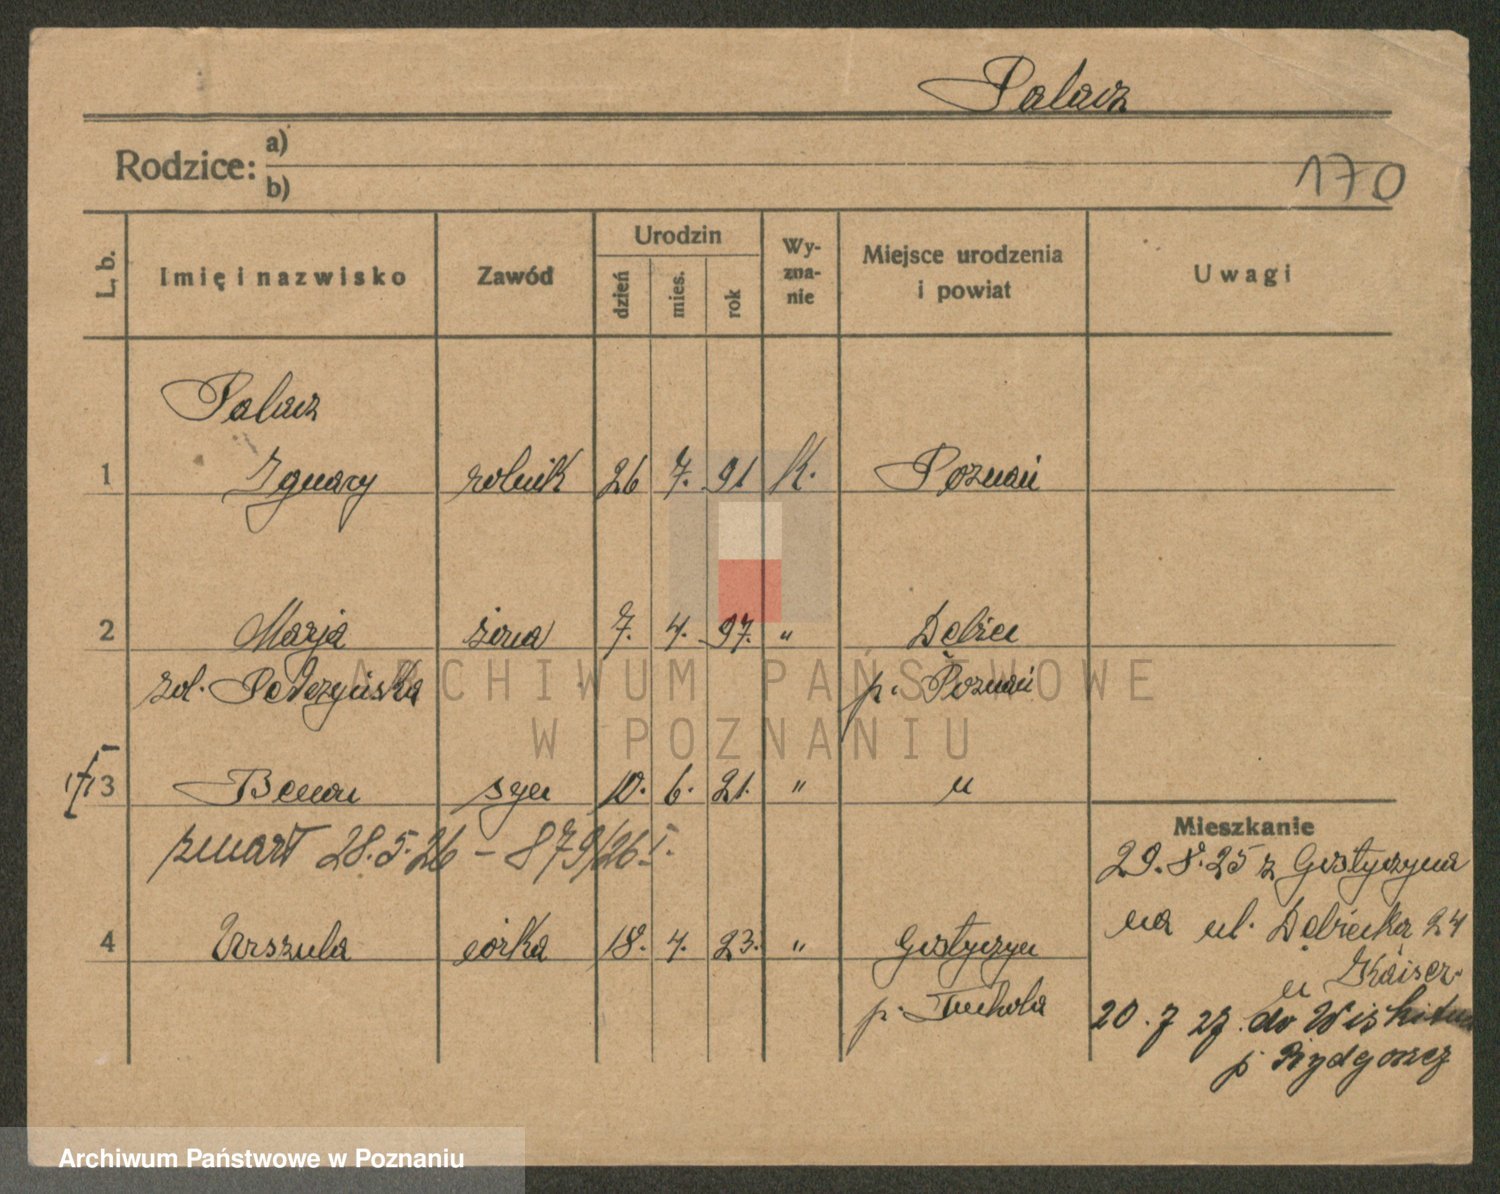 Palacz
Rodzice: a)
b)
170
L. b. Imię i nazwisko Zawód Urodzin dzień mies. rok Wy-zna-nie Miejsce urodzenia i powiat Uwagi
Palacz
1 Ignacy rolnik 26 7. 91 K. Poznań
2 Marja żona 7. 4. 97. " Dębiec
zol. p. Poznań
ARCHIWUM PAŃSTWOWE
W POZNANIU
3 Benon syn 10. 6. 21. " "
zmarł 28.5.26 – 879/26 I.
4 Urszula córka 18. 4. 23. " Gostyczyn
p. Tuchola
Mieszkanie
29.8.25 z Gostyczyna
na ul. Dębiecka 24
u
20.7 27. do
p Bydgoszcz
Archiwum Państwowe w Poznaniu